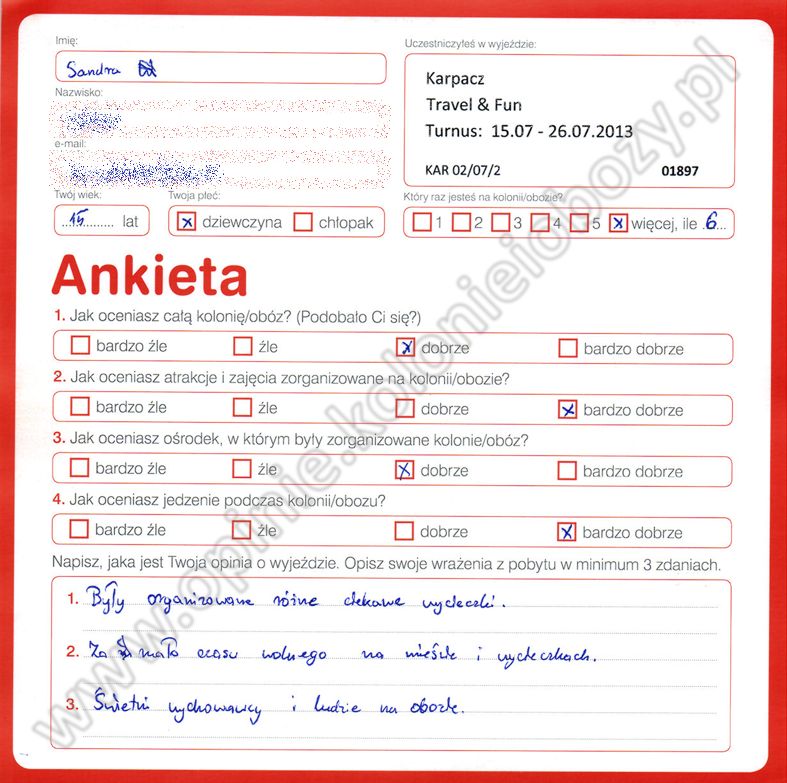 Imię:
Sandra
Uczestniczyłeś w wyjeździe:
Karpacz
Travel & Fun
Turnus: 15.07 - 26.07.2013
KAR 02/07/2 01897
Nazwisko:
e-mail:
Twój wiek:
15 lat
Twoja płeć:
x dziewczyna chłopak
Który raz jesteś na kolonii/obozie?
1 2 3 4 5 x więcej, ile 6
Ankieta
1. Jak oceniasz całą kolonię/obóz? (Podobało Ci się?)
bardzo źle źle x dobrze bardzo dobrze
2. Jak oceniasz atrakcje i zajęcia zorganizowane na kolonii/obozie?
bardzo źle źle dobrze x bardzo dobrze
3. Jak oceniasz ośrodek, w którym były zorganizowane kolonie/obóz?
bardzo źle źle x dobrze bardzo dobrze
4. Jak oceniasz jedzenie podczas kolonii/obozu?
bardzo źle źle dobrze x bardzo dobrze
Napisz, jaka jest Twoja opinia o wyjeździe. Opisz swoje wrażenia z pobytu w minimum 3 zdaniach.
1. Były organizowane różne ciekawe wycieczki.
2. Za mało czasu wolnego na mieście i wycieczkach.
3. Świetni wychowawcy i ludzie na obozie.
www.opinie.kolonieiobozy.pl